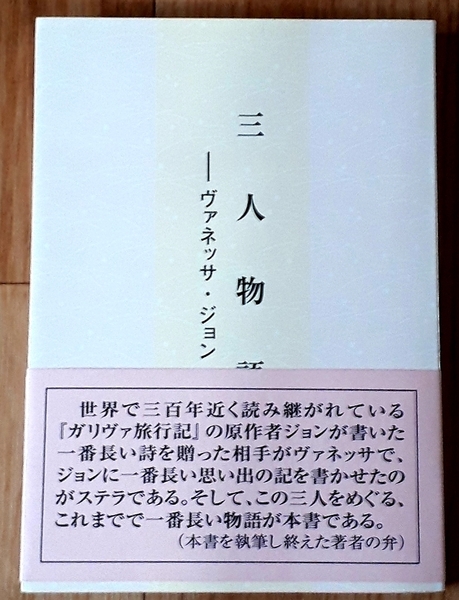 三人物語
――ヴァネッサ・ジョン
世界で三百年近く読み継がれている
『ガリヴァ旅行記』の原作者ジョンが書いた
一番長い詩を贈った相手がヴァネッサで、
ジョンに一番長い思い出の記を書かせたの
がステラである。そして、この三人をめぐる、
これまでで一番長い物語が本書である。
（本書を執筆し終えた著者の弁）